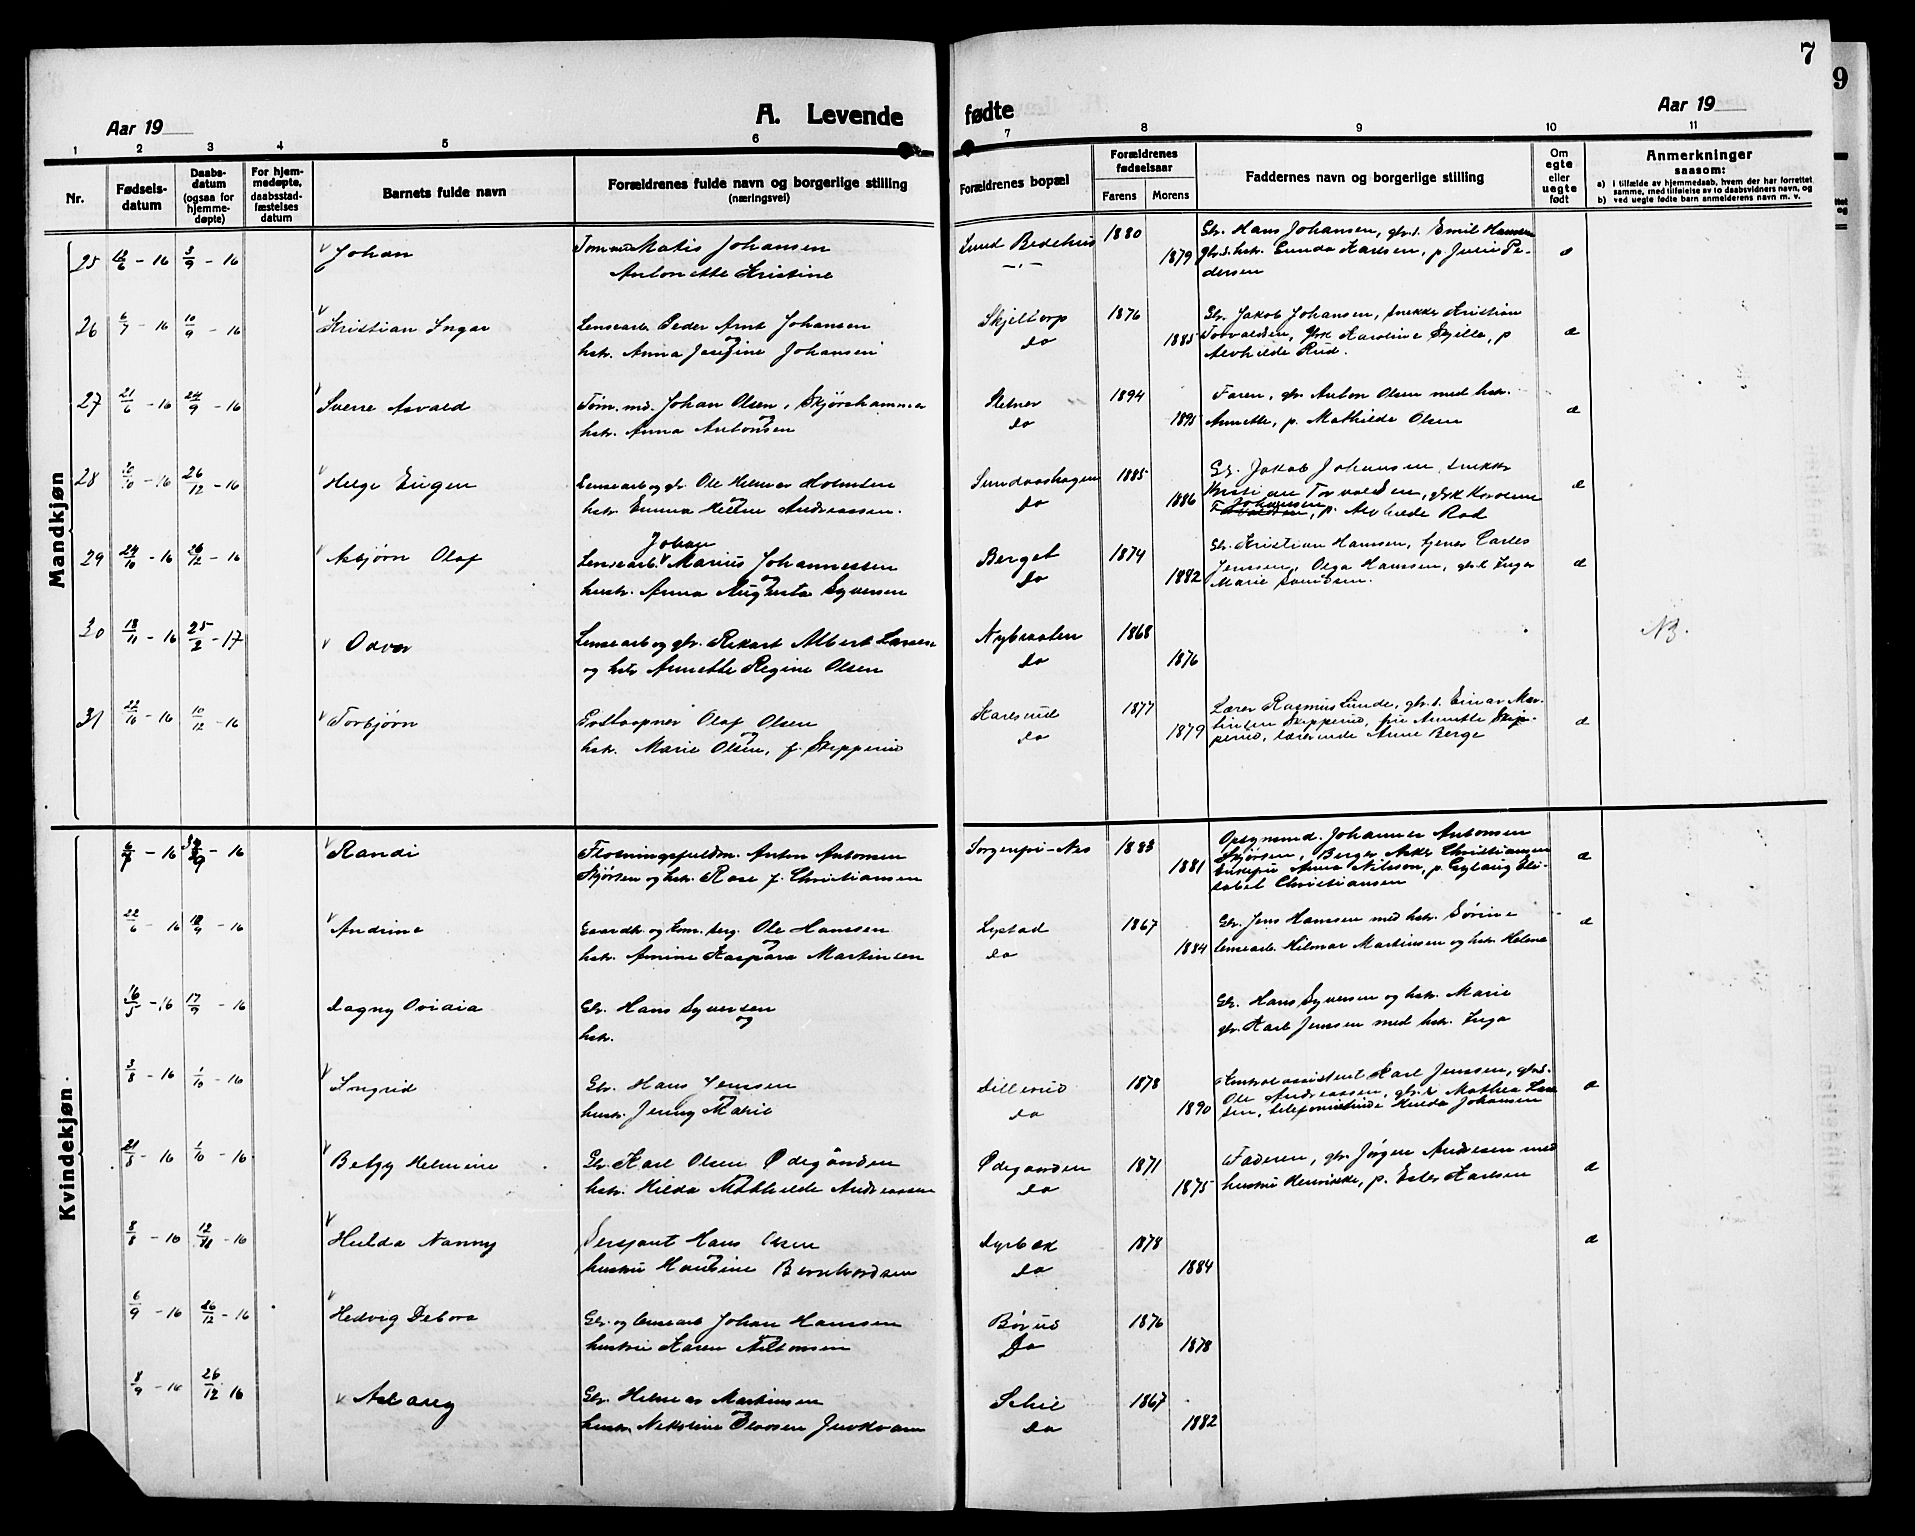 7
9
Aar 19
A. Levende
fødte
Aar 19
1 2 3 4 5 6 7 8 9 10 11
Nr.
Fødsels-
datum
Daabs-
datum
(ogsaa for
hjemme-
døpte)
For hjem-
medøpte,
daabsstad-
fæstelses
datum
Barnets fulde navn
Forældrenes fulde navn og borgerlige stilling
(næringsvei)
Forældrenes bopæl
Forældrenes
fødselsaar
Farens Morens
Faddernes navn og borgerlige stilling
Om
egte
eller
uegte
født
Anmerkninger
saasom:
a) i tilfælde av hjemmedaab, hvem der har forrettet
samme, med tilføielse av to daabsvidners navn, og
b) ved uegte fødte barn anmelderens navn m. v.
Mandkjøn
25 - 16 3/9 - 16 Johan Matis Johansen Lund Bedehus 1880 Gbr. Hans Johansen, gbr.s. Emil Hansen
Antonette Kristine 1879 gbr.s. hstr. Gunda Karlsen, p. Julie Pe-
dersen
26 6/7 - 16 10/9 - 16 Kristian Ingar Lensearb. Peder Arnt Johansen Skjeltorp 1876 Gbr. Jakob Johansen, snekker Kristian
og
hstr. Anna Josefine Johansen do 1885 Torvaldsen, Karoline p
Alvhilde Rud.
27 21/6 - 16 24/9 - 16 Sverre Asvald Tøm. md. Johan Olsen, Skjørshammer 1894 Faren, gbr. Anton Olsen med hstr.
og
hstr. Anna Antonsen do 1895 Annette, p. Mathilde Olsen
28 - 16 26/12 - 16 Helge Eugen Lensearb og gbr. Ole Helmer Holmsen Sundaashagen 1885 Gbr. Jakob Johansen, snekker
hstr. Emma Andreassen. do 1886 Kristian Torvaldsen,
Johansen, p. Alvhilde Rød
29 24/10 - 16 26/12 - 16 Asbjørn Olaf Johan
Lensearb. Marius Johannessen Berget 1874 Gbr. Kristian Hanssen, tjener Carles
og
hustr. Anna Augusta Syversen do 1882 Jenssen, Olga Hanssen, Inga
Marie
30 18/11 - 16 25/2 - 17 Odvar Lensearb og gbr. Rikart Albert Larsen Nybraaten 1868 NB.
og hstr Annette Regine Olsen do 1876
31 22/10 - 16 10/12 - 16 Torbjørn Postaapner Olaf Olsen Karlsrud 1877 Lærer Rasmus Lunde, gbr.s. Einar Mar-
og
hstr. Marie Olsen, f. Skipperud do 1879 tinsen Skipperud, frk Annette Skip-
perud, lærerinde Anne Berge
Kvindekjøn
6/7 - 16 - 16 Randi Fløtningsfuldm. Anton Antonsen Sorgenfri - Nes 1883 Opsynsmd. Johannes Antonsen
Skjørsen og hstr. Rose f. Christiansen 1881 Skjørsen, Berger Christiansen
Anna Nilsson, p. Gylaug Eli-
sabet Christiansen
22/6 - 16 18/9 - 16 Andrine Gaardbr. og Ole Hanssen Lystad 1867 Gbr. Jens Hanssen med hstr. Sørine
og
hstr. Amine Kaspara Martinsen do 1884 lensearb. Hilmar Martinsen og hstr. Helene
16/5 - 16 17/9 - 16 Dagny Ovidia Gbr. Hans Syversen Gbr. Hans Syversen og hstr. Marie
og
hstr. gbr. Karl Jenssen med hstr. Inga
3/8 - 16 1/10 - 16 Ingrid Gbr. Hans Jenssen Dillerud 1878 Kontrolassistent Karl Jenssen, gbr.s.
hustr. Jenny Marie do 1890 Ole Andreassen, Mathea
telefonistinde Hulda Johansen
21/8 - 16 1/10 - 16 Betzy Helmine Gbr. Karl Olsen Ødegaarden Ødegaarden 1871 Faderen, gbr. Jørgen Andersen med
hstr. Hilda Mathilde Andreassen do 1875 hustru Henrikke, p. Ester Karlsen
8/8 - 16 - 16 Hulda Nanny Sersjant Hans Olsen Dyrbæk 1878
hustru Hansine Bernhardsen do 1884
6/9 - 16 26/12 - 16 Hedvig Debora Gbr. og lensearb Johan Hanssen Børud 1876
hustru Karen Antonsen Do 1878
8/9 - 16 26/12 16 Aslaug Gbr. Helmer Martinsen 1867
hustr. Nikoline Olavsen do 1882